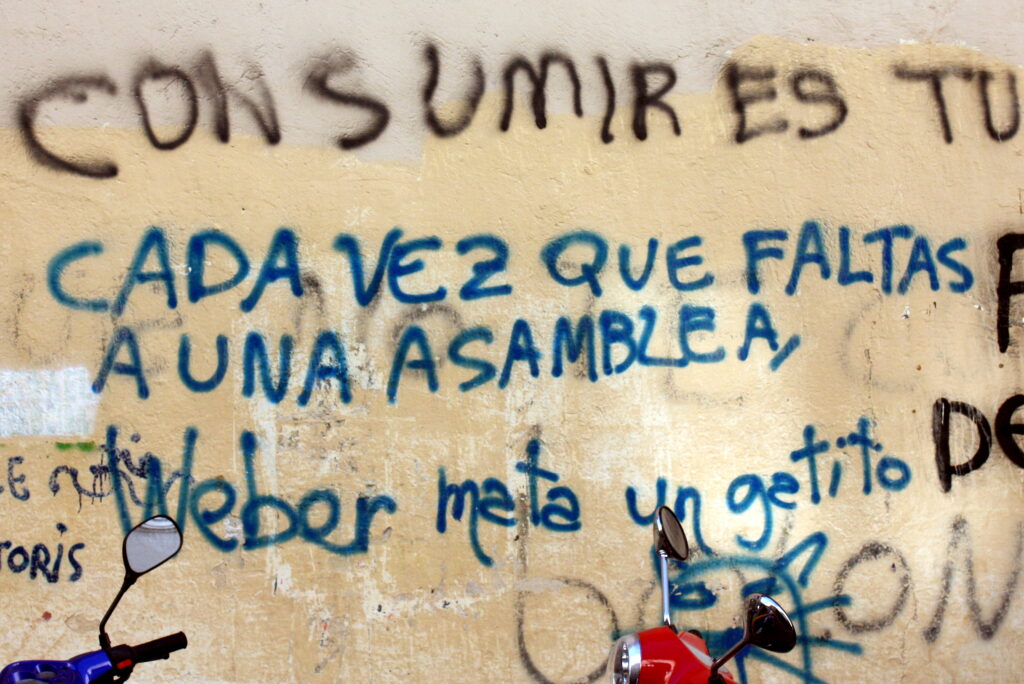 CONSUMIR ES TU
CADA VEZ QUE FALTAS
A UNA ASAMBLEA,
Weber mata un gatito
DE
TORIS